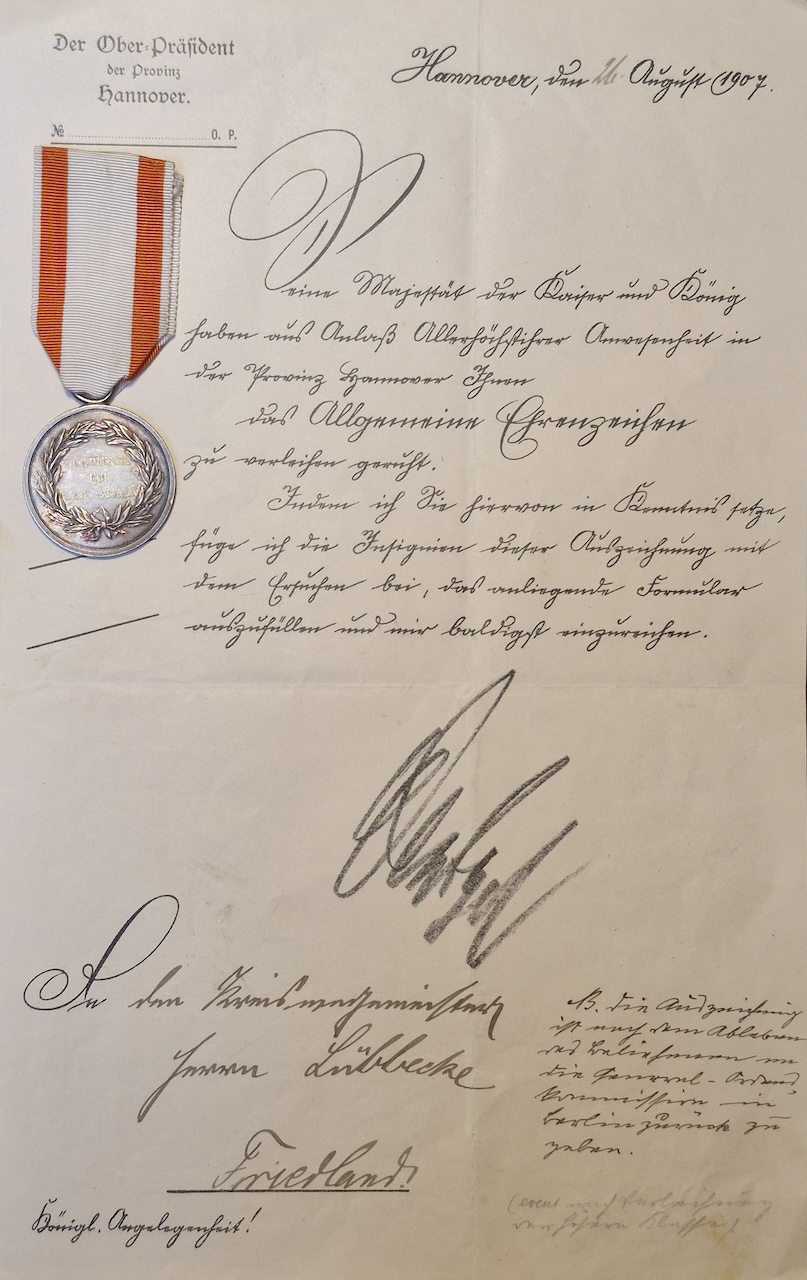 Der Ober=Präsident
der Provinz
Hannover.
№ O. P.
Hannover, den 26. August 1907.
Seine Majestät der Kaiser und König
haben aus Anlaß Allerhöchstihrer Anwesenheit in
der Provinz Hannover Ihnen
das Allgemeine Ehrenzeichen
zu verleihen geruht.
Indem ich Sie hiervon in Kenntnis setze,
füge ich die Insignien dieser Auszeichnung mit
dem Ersuchen bei, das anliegende Formular
auszufüllen und mir baldigst einzureichen.
VERDIENST
UM
DEN STAAT
An den Kreiswegemeister
Herrn Lübbecke
Friedland.
Königl. Angelegenheit!
N. die Auszeichnung
ist nach dem Ableben
des Beliehenen an
die General-Ordens
kommission in
Berlin zurück zu
geben.
(event. nach Verleihung
der höhern Klasse)